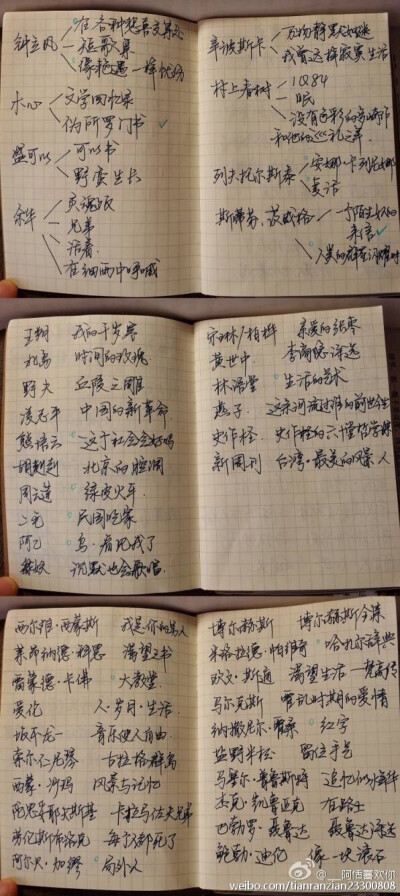 钟立风
在各种悲喜交集处
短歌集
像艳遇一样忧伤
木心
文学回忆录
伪所罗门书
盛可以
可以书
野蛮生长
余华
灵魂饭
兄弟
活着
在细雨中呼喊
辛波斯卡
万物静默如谜
我曾这样寂寞生活
村上春树
1Q84
眠
没有色彩的多崎作
和他的巡礼之年
列夫托尔斯泰
安娜·卡列尼娜
复活
斯蒂芬·茨威格
一个陌生女人的
来信
人类的群星闪耀时
王朔 我的千岁寒
北岛 时间的玫瑰
野夫 丘陵之雕
凌志军 中国的新革命
熊培云 这个社会会好吗
胡赳赳 北京的腔调
周云蓬 绿皮火车
二毛 民国吃家
阿乙 鸟,看见我了
蔡姒 沉默也会歌唱
宋琳/柏桦 亲爱的张枣
黄世中 李商隐诗选
林语堂 生活的艺术
燕子 这条河流过谁的前世今生
史作柽 史作柽的六十堂哲学课
新周刊 台湾,最美的风景人
西尔维·西蒙斯 我是你的男人
莱昂纳德·科恩 渴望之书
雷蒙德·卡佛 大教堂
爱伦 人·岁月·生活
坂本龙一 音乐使人自由
索尔仁尼琴 古拉格群岛
西蒙·沙玛 风景与记忆
陀思妥耶夫斯基 卡拉马佐夫兄弟
劳伦斯布洛克 每个人都死了
阿尔贝·加缪 局外人
博尔赫斯 博尔赫斯全集
米洛拉德·帕维奇 哈扎尔辞典
欧文·斯通 渴望生活—梵高传
马尔克斯 霍乱时期的爱情
纳撒尼尔·霍桑 红字
盐野米松 留住手艺
马塞尔·普鲁斯特 追忆似水年华
杰克·凯鲁亚克 在路上
巴勃罗·聂鲁达 聂鲁达诗选
鲍勃·迪伦 像一块滚石
@__阿佶喜欢你
weibo.com/tianranzian23300808